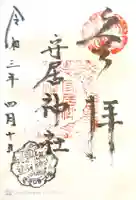 奉拝
安居神社
令和三年四月十日